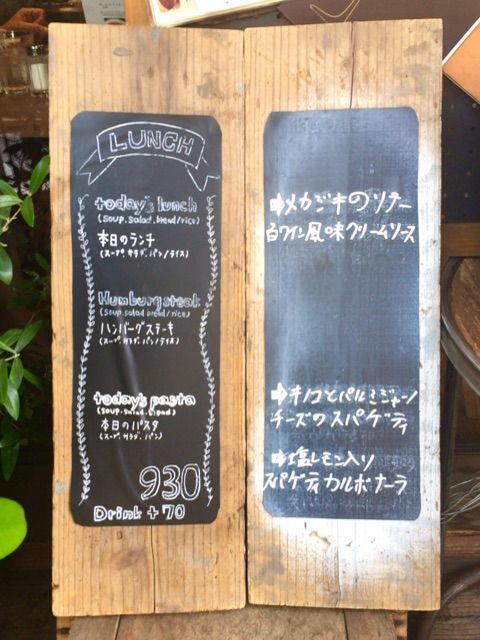 LUNCH
today's lunch
(soup.salad.blead/rice)
本日のランチ
(スープ.サラダ.パン/ライス)
Humburg steak
(soup.salad blead/rice)
ハンバーグステーキ
(スープ.サラダ.パン/ライス)
today's pasta
(soup.salad.blead)
本日のパスタ
(スープ.サラダ.パン)
930
Drink +70
➡メカジキのソテー
白ワイン風味クリームソース
➡キノコとパルミジャーノ
チーズのスパゲティ
➡塩レモン入り
スパゲティカルボナーラ